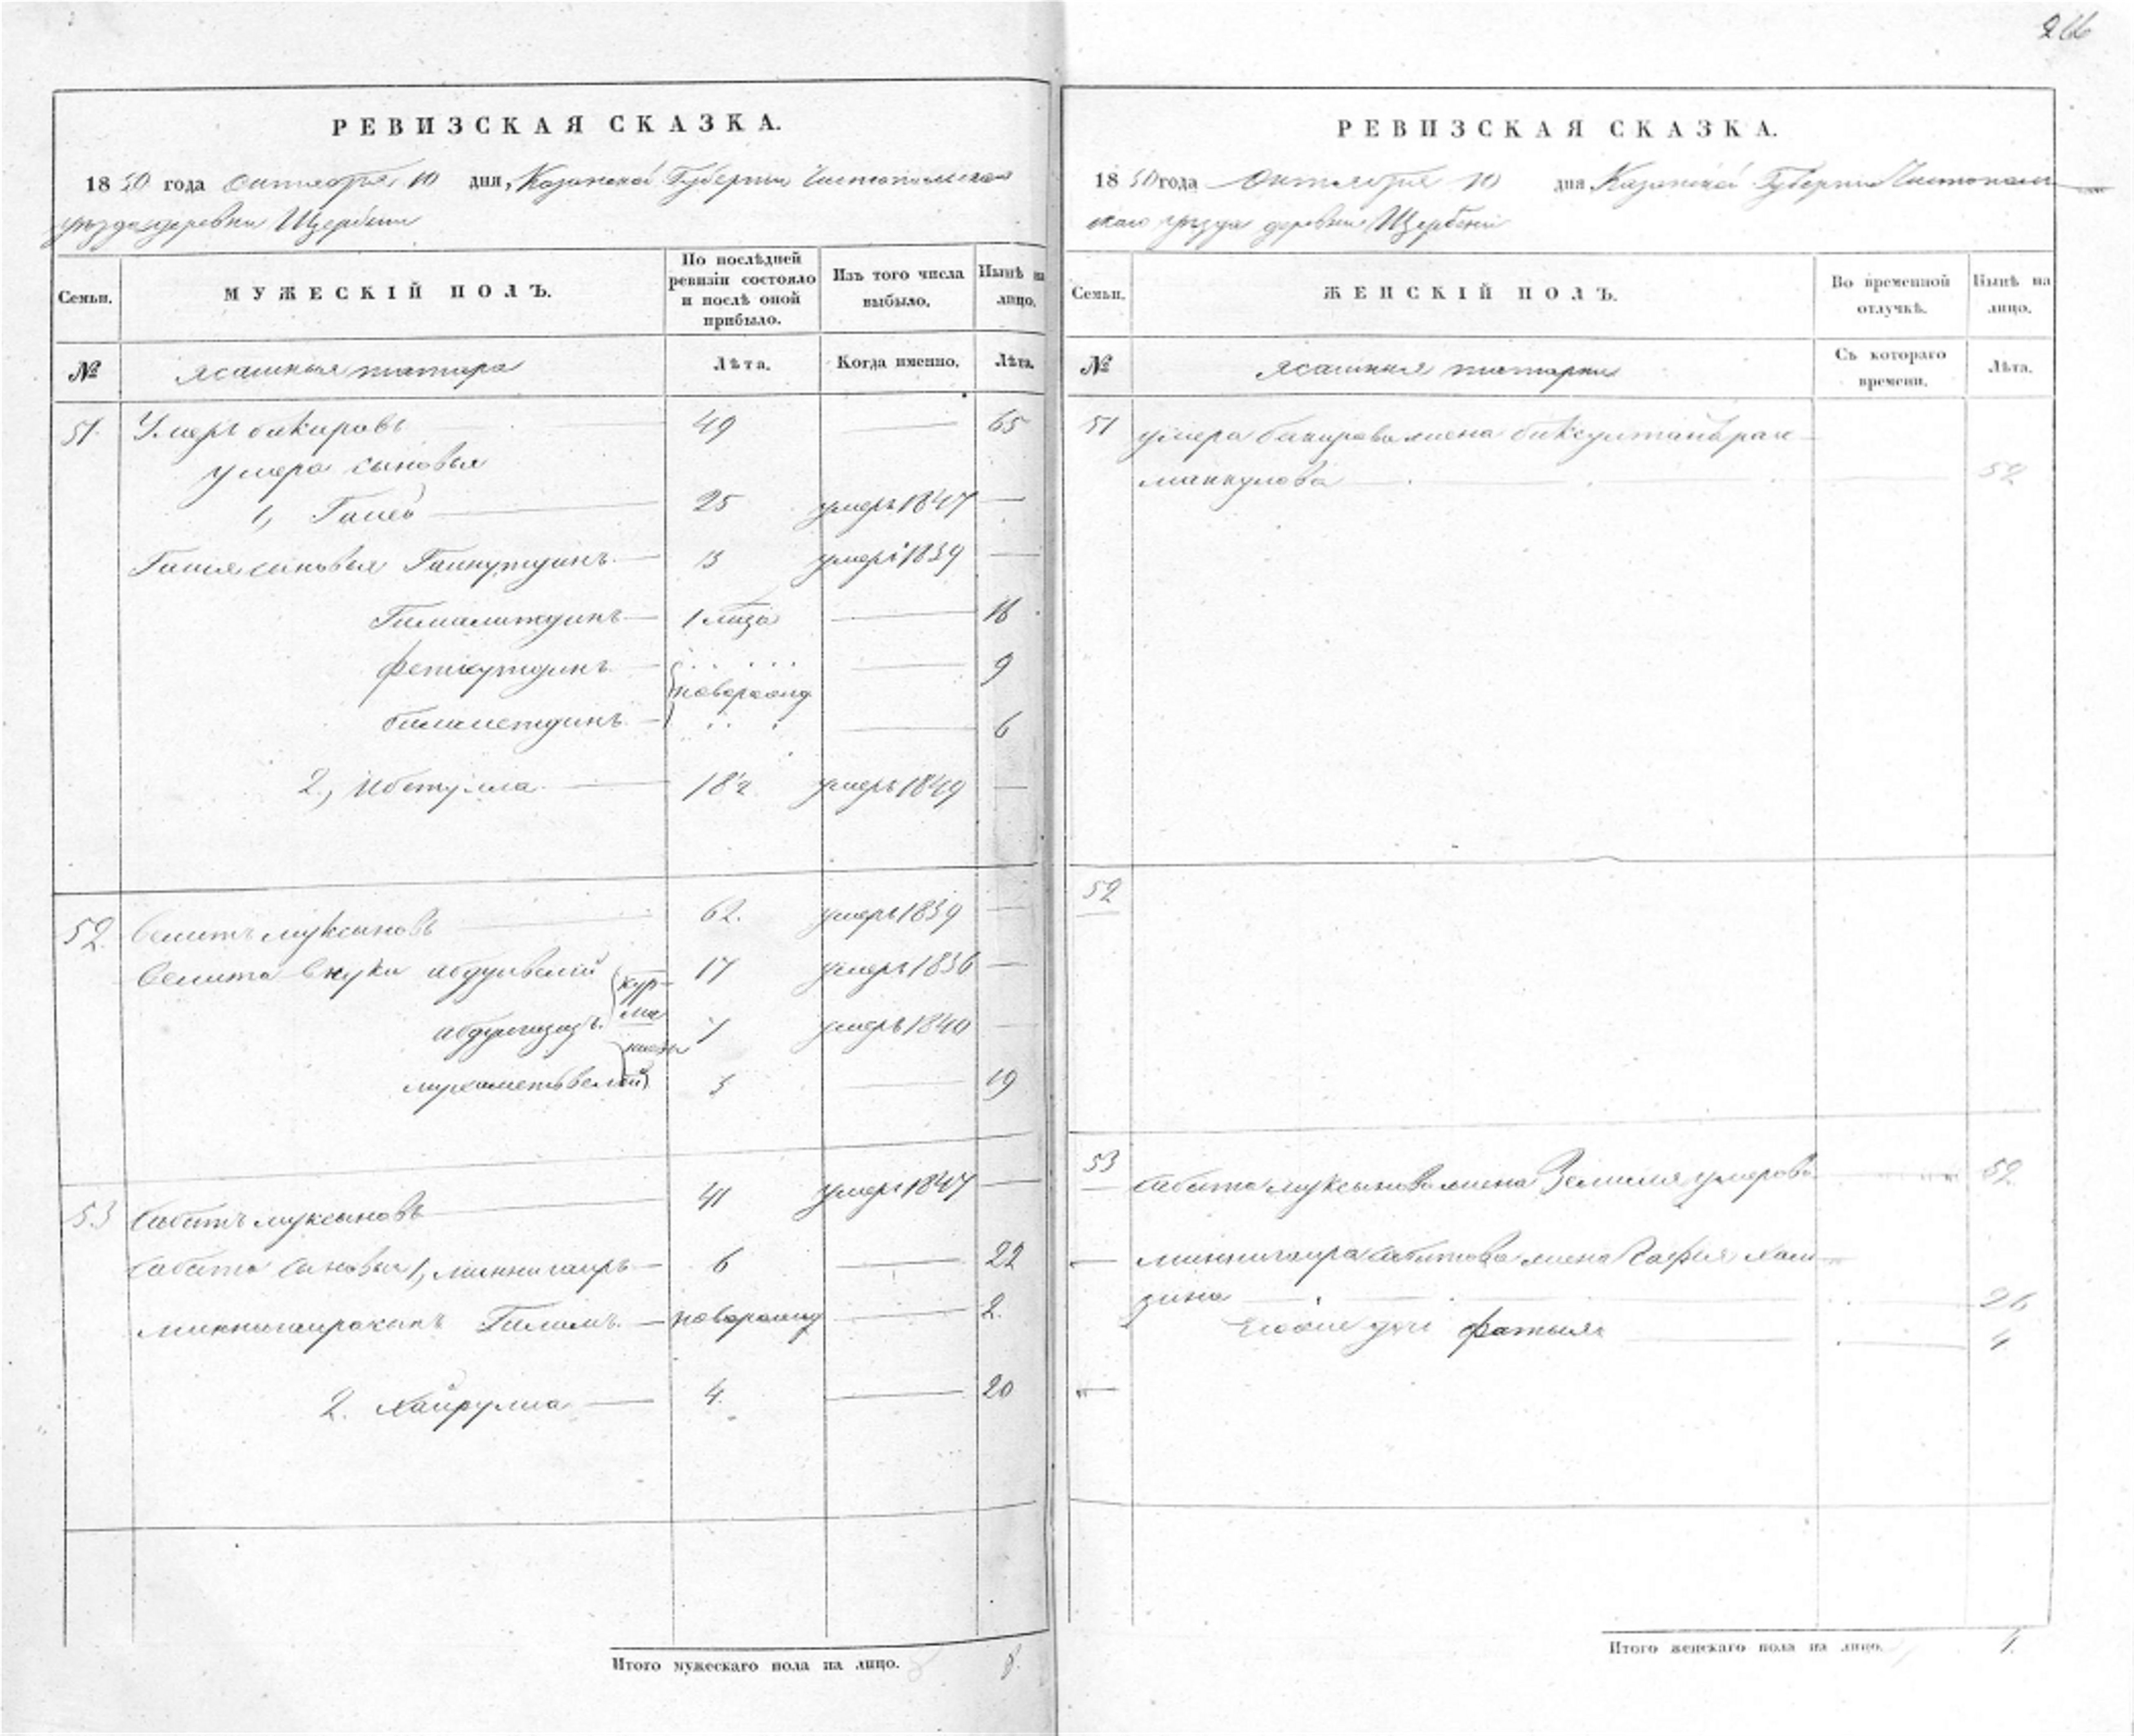 266
РЕВИЗСКАЯ СКАЗКА.
1850 года Октября 10 дня, Казанской Губернии Чистопольскаго
уезда деревни Щербени
Семьи.
МУЖЕСКІЙ ПОЛЪ.
По послѣдней ревизіи состояло и послѣ оной прибыло.
Изъ того числа выбыло.
Нынѣ на лицо.
№
ясашныя татара
Лѣта.
Когда именно.
Лѣта.
51. Умеръ бакировъ 49 65
умера сыновья
1, 25 умеръ 1847
сыновья умеръ 1839
1 16
фетхутдинъ 9
новорожд
6
2, 18 1/2 умеръ 1849
52. муксыновъ 62. умеръ 1839
внуки абдулвелий 17 умеръ 1836
7 умеръ 1840
мухаметьвелий 3 19
53 Сабитъ муксыновъ 41 умеръ 1847
Сабита сыновья 1, миннигаиръ 6 22
новорожд 2.
2. Хайрулла 4. 20
Итого мужескаго пола на лицо. 8.
РЕВИЗСКАЯ СКАЗКА.
1850 года Октября 10 дня Казанской Губернии Чистополь
скаго уезда деревни Щербени
Семьи.
ЖЕНСКІЙ ПОЛЪ.
Во временной отлучкѣ.
Нынѣ на лицо.
№
ясашныя татарки
Съ котораго времени.
Лѣта.
51 умера бакирова жена
52
52
53 Сабита муксынова жена умерова 52
миннигаира Сабитова жена
зина 26
фатыма 4
Итого женскаго пола на лицо. 4.